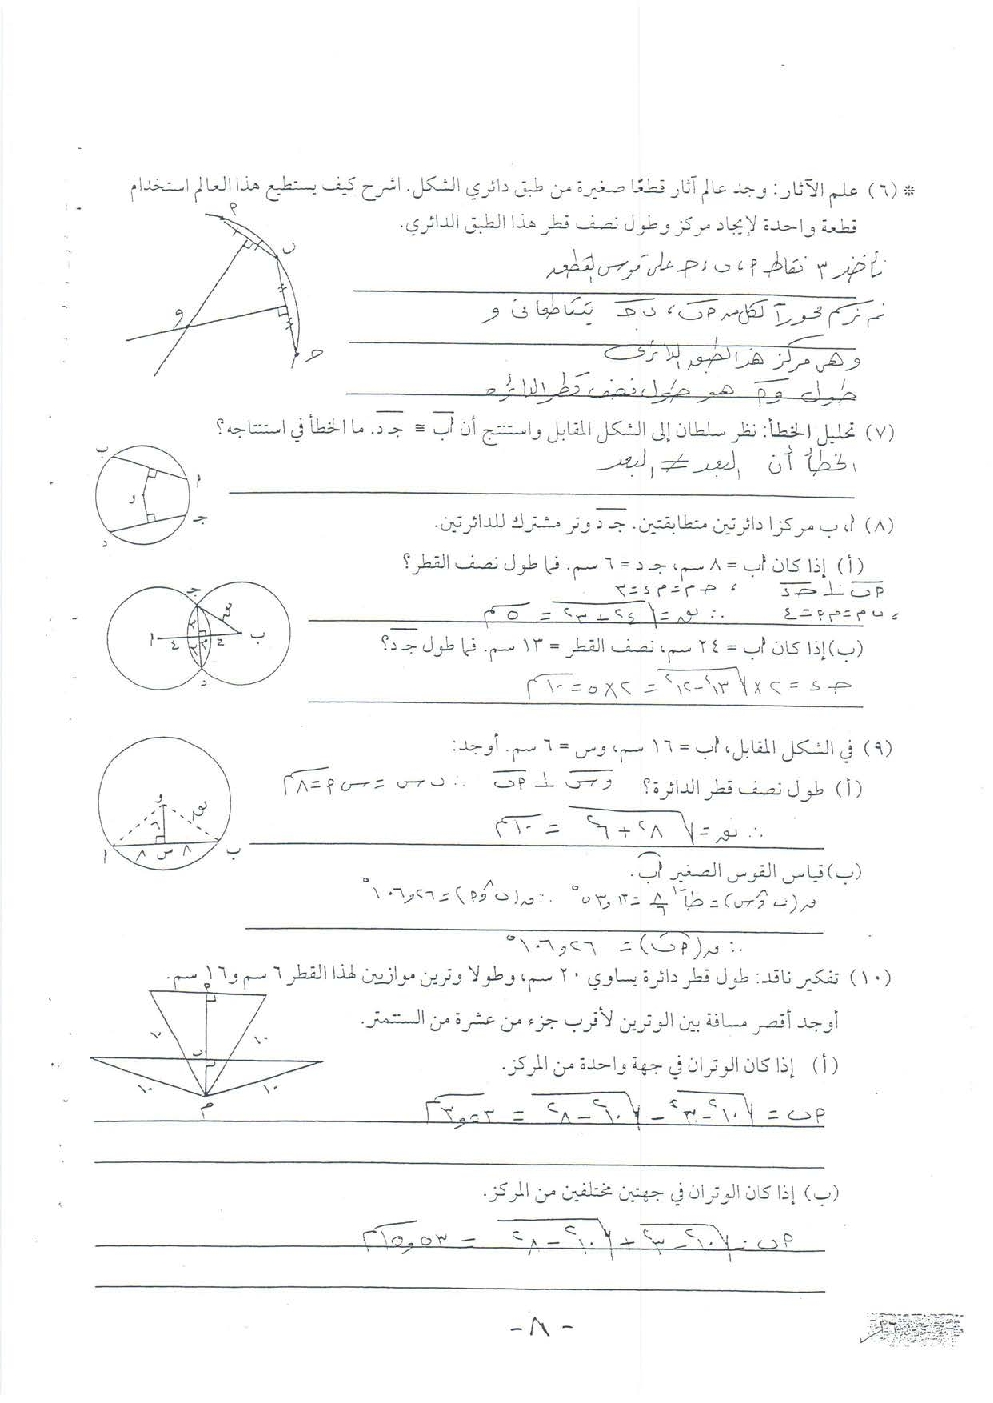 * (٦) علم الآثار: وجد عالم آثار قطعًا صغيرة من طبق دائري الشكل. اشرح كيف يستطيع هذا العالم استخدام
قطعة واحدة لإيجاد مركز وطول نصف قطر هذا الطبق الدائري.
نأخذ ٣ نقاط م، ن، حـ على قوس القطعة
ثم نرسم محوراً لكل من م ن، ن حـ يتقاطعان و
وهي مركز هذا الطبق الدائري
طول و م هو طول نصف قطر الدائرة
(٧) تحليل الخطأ: نظر سلطان إلى الشكل المقابل واستنتج أن أب ≅ جـ د. ما الخطأ في استنتاجه؟
الخطأ أن البعد ≠ البعد
(٨) أ، ب مركزا دائرتين متطابقتين. جـ د وتر مشترك للدائرتين.
(أ) إذا كان أب = ٨ سم، جـ د = ٦ سم. فما طول نصف القطر؟
(ب) إذا كان أب = ٢٤ سم، نصف القطر = ١٣ سم. فما طول جـ د؟
حـ د = ٢ × √١٣² − ١٢² = ٢ × ٥ = ١٠ سم
(٩) في الشكل المقابل، أب = ١٦ سم، وس = ٦ سم. أوجد:
(أ) طول نصف قطر الدائرة؟
∴ نق = √٨² + ٦² = ١٠ سم
(ب) قياس القوس الصغير أب.
(١٠) تفكير ناقد: طول قطر دائرة يساوي ٢٠ سم، وطولا وترين موازيين لهذا القطر ٦ سم و١٦ سم.
أوجد أقصر مسافة بين الوترين لأقرب جزء من عشرة من السنتمتر.
(أ) إذا كان الوتران في جهة واحدة من المركز.
م ن = √١٠² − ٣² − √١٠² − ٨² = ٣,٥٣ سم
(ب) إذا كان الوتران في جهتين مختلفين من المركز.
م ن = √١٠² − ٣² + √١٠² − ٨² = ١٥,٥٣ سم
- ٨ -